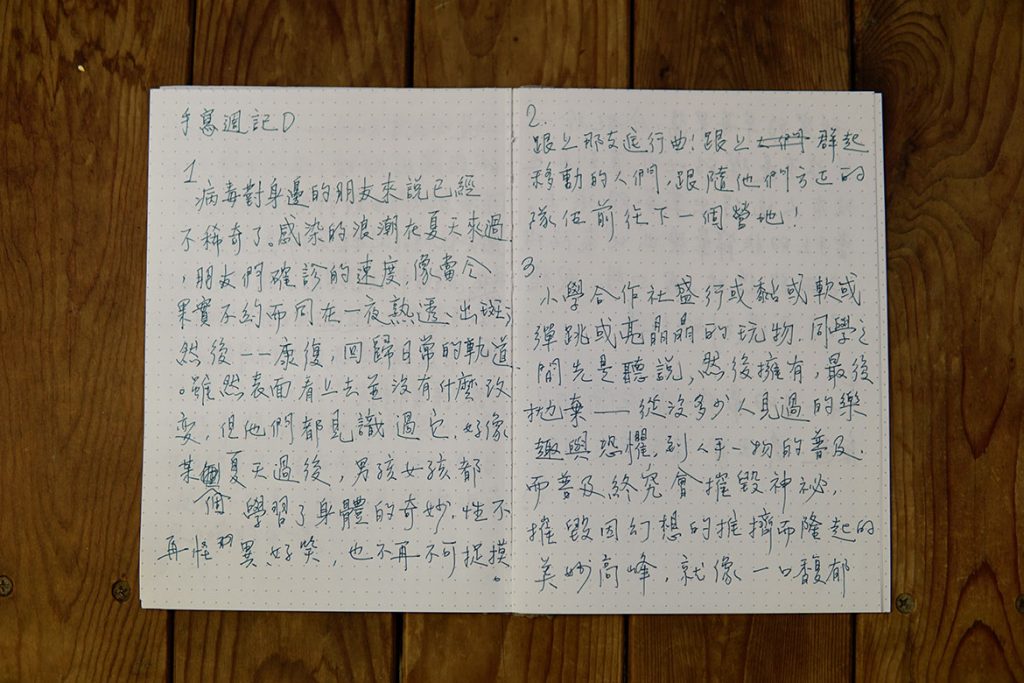 手寫週記D
1
病毒對身邊的朋友來說已經
不稀奇了。感染的浪潮在夏天來過
，朋友們確診的速度，像當令
果實不約而同在一夜熟透、出斑；
然後一一康復，回歸日常的軌道
。雖然表面看上去並沒有什麼改
變，但他們都見識過它，好像
某個夏天過後，男孩女孩都
個
學習了身體的奇妙，性不
再怪異、好笑，也不再不可捉摸
。
2.
跟上那支進行曲！跟上群起
移動的人們，跟隨他們方正的
隊伍前往下一個營地！
3.
小學合作社盛行或黏或軟或
彈跳或亮晶晶的玩物，同學之
間先是聽說，然後擁有，最後
拋棄——從沒多少人見過的樂
趣與恐懼，到人手一物的普及，
而普及終究會摧毀神祕，
摧毀因幻想的推擠而隆起的
美妙高峰，就像一口馥郁